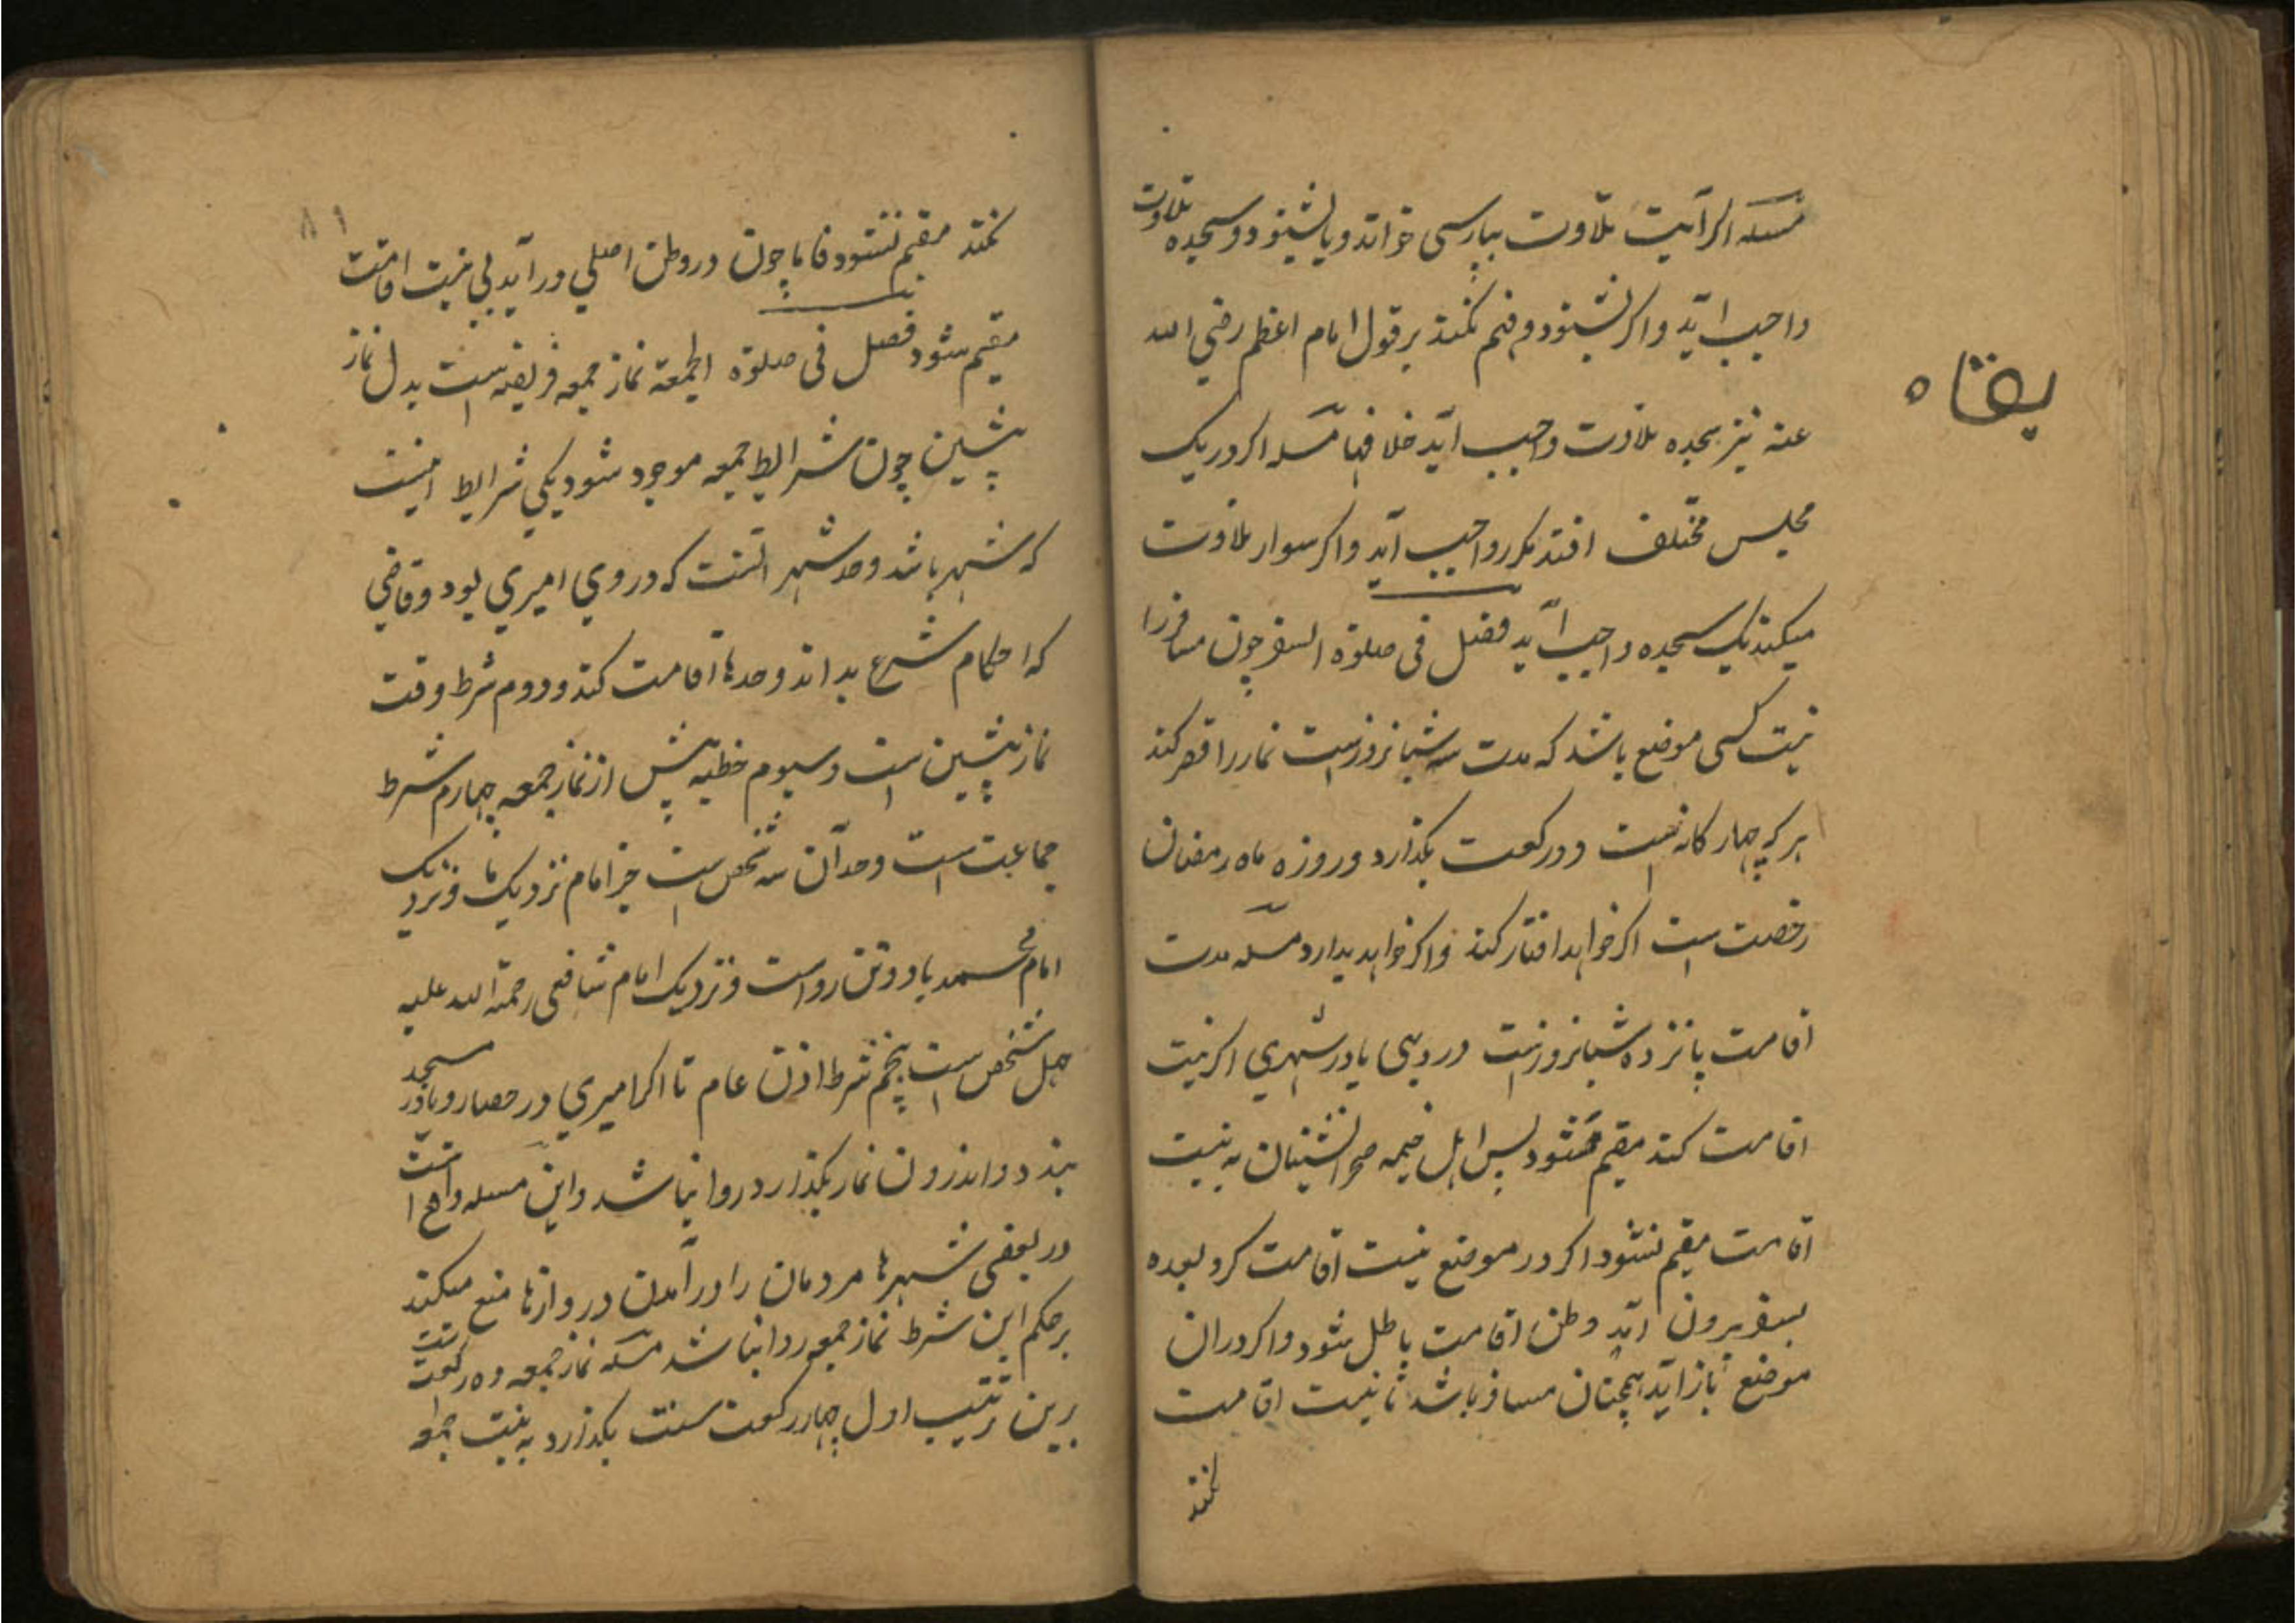 مسئله اکر آیت تلاوت بپارسی خواند و یا بشنود و سجده تلاوت
واجب آید و اکر بشنود و فهم نکند بر قول امام اعظم رضی الله
عنه نیز سجده تلاوت واجب آید خلافهما مسئله اکر در یک
مجلس مختلف افتد مکرر واجب آید و اکر سوار تلاوت
میکند یک سجده واجب آید فصل فی صلوة السفر چون مسافر را
نیت کسی موضع باشد که مدت سه شبانروزست نماز را قصر کند
هر که چهار کانه است دو رکعت بکذارد و روزه ماه رمضان
رخصت است اکر خواهد افتار کند و اکر خواهد بدارد مسئله مدت
اقامت پانزده شبانروزست در دیهی یا در شهری اکر نیت
اقامت کند مقیم شود پس اهل خیمه صحرا نشینان به نیت
اقامت مقیم نشود اکر در موضع نیت اقامت کرد بعده
بسفر بیرون آید وطن اقامت باطل شود و اکر در ان
موضع باز آید همچنان مسافر باشد تا نیت اقامت
نکند
پقاه
۸۱
نکند مقیم نشود فاما چون در وطن اصلی در آید بی نیت اقامت
مقیم شود فصل فی صلوة الجمعة نماز جمعه فریضه است بدل نماز
پیشین چون شرایط جمعه موجود شود یکی شرایط اینست
که شهر باشد و حد شهر آنست که در وی امیری بود و قاضی
که احکام شرع بداند و حدها اقامت کند و دوم شرط وقت
نماز پیشین است و سیوم خطبه پیش از نماز جمعه چهارم شرط
جماعت است و حد آن سه شخص است جز امام نزدیک ما و نزدیک
امام محمد با دو تن رواست و نزدیک امام شافعی رحمة الله علیه
چهل شخص است پنجم شرط اذن عام تا اکر امیری در حصار و یا در مسجد
بندد و اندرون نماز بکذارد روا نباشد و این مسله واقع است
در بعضی شهرها مردمان را در آمدن دروازها منع میکند
بر حکم این شرط نماز جمعه روا نباشد مسئله نماز جمعه ده رکعت است
برین ترتیب اول چهار رکعت سنت بکذارد به نیت